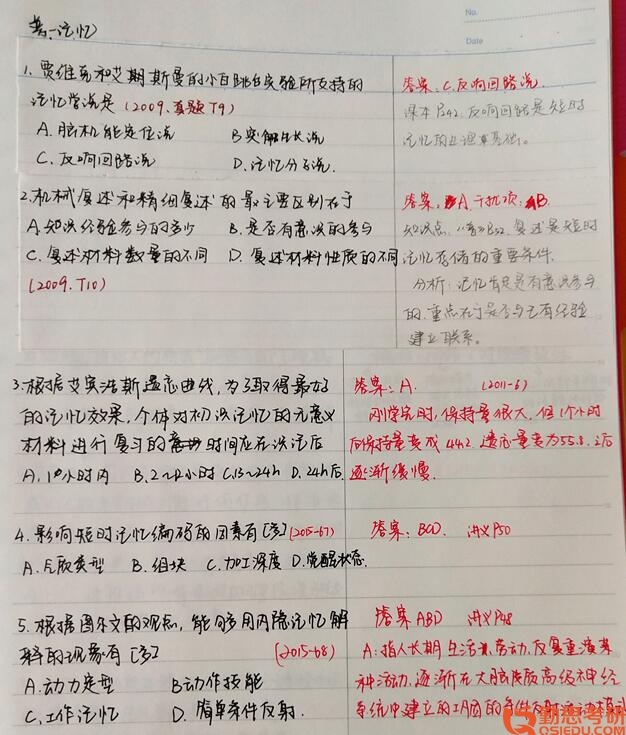 No.
Date
普、记忆
1. 贾维克和艾斯曼的小白鼠跳台实验所支持的
记忆学说是(2009.真题T9)
A. 脑机能定位说
B 突触生长说
C. 反响回路说
D. 记忆分子说.
答案: C.反响回路说.
课本P242. 反响回路是短时
记忆的生理基础。
2. 机械复述和精细复述的最主要区别在于
A. 知识经验参与的多少
B. 是否有意识的参与
C. 复述材料数量的不同
D. 复述材料性质的不同
(2009.T10)
答案: A. 干扰项: B.
复述是短时
记忆存储的重要条件.
分析: 记忆肯定是有意识参与
的. 重点在于是否与已有经验
建立联系。
3. 根据艾宾浩斯遗忘曲线, 为了取得最好
的记忆效果, 个体对初次记忆的无意义
材料进行复习的时间应在识记后
A. 1个小时内 B. 2~12小时 C. 13~24h D. 24h后.
答案: A. (2011-6)
刚学完时, 保持量很大, 但1个小时
后保持量变成44.2. 遗忘量变为55.8, 之后
逐渐缓慢.
4. 影响短时记忆编码的因素有[多](2015-67)
A. 反应类型 B. 组块 C. 加工深度 D. 觉醒状态.
答案: BCD. 讲义P50
5. 根据图尔文的观点, 能够用内隐记忆解
释的现象有[多] (2015-68)
A. 动力定型
B 动作技能
C. 工作记忆
D. 简单条件反射.
答案 ABD 讲义P48
A: 指人长期生活、劳动, 反复重演某
种活动, 逐渐在大脑皮质高级神经
系统中建立的巩固的条件反射活动模式
勤思考研
QSIEDU.COM